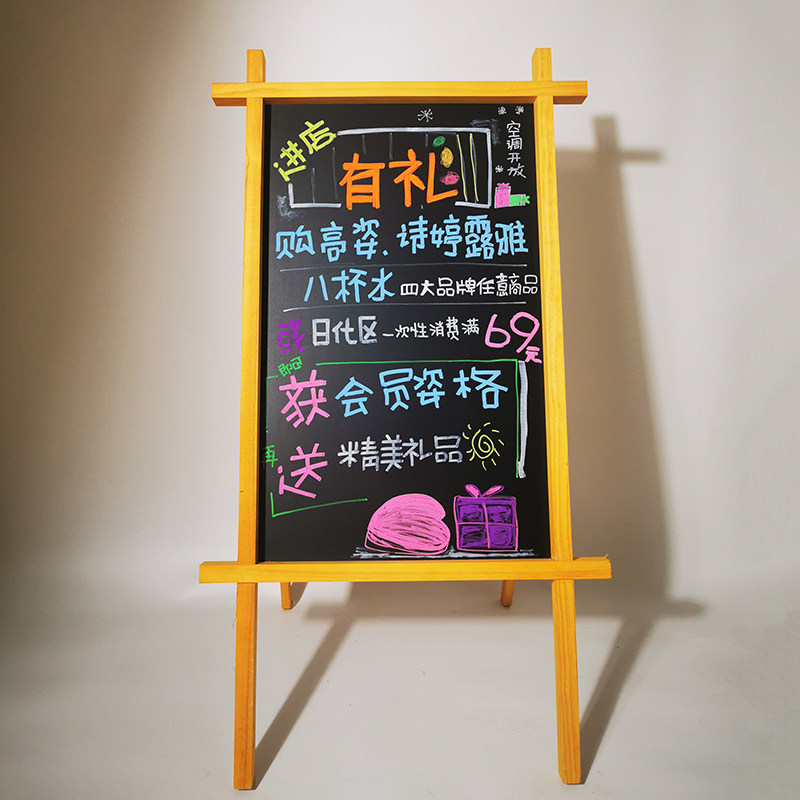 进店
有礼
空调开放
购高姿.诗婷露雅
八杯水 四大品牌任意商品
或 日代区 一次性消费满 69元
即可
获 会员姿格
再
送 精美礼品